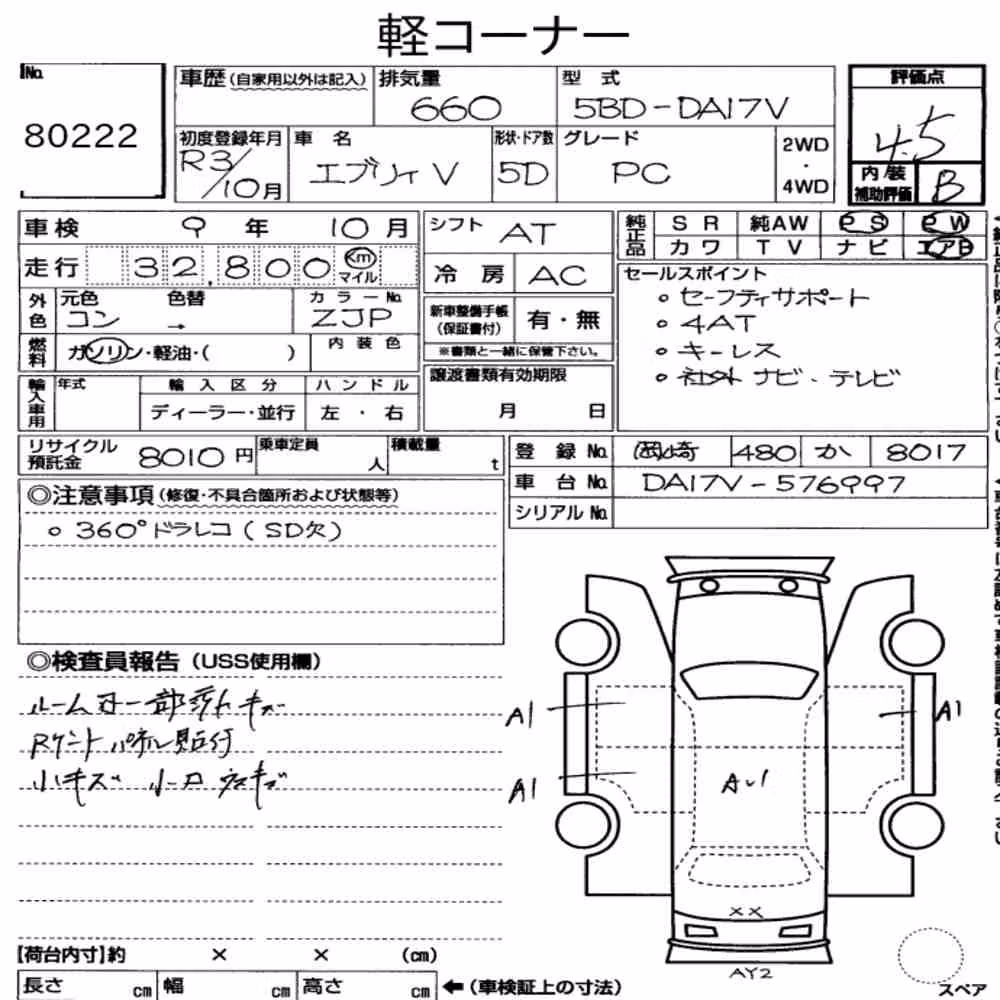 軽コーナー
No.
80222
車歴(自家用以外は記入)
排気量
660
型 式
5BD-DA17V
評価点
4.5
内/装
補助評価
B
初度登録年月
R3/10月
車 名
エブリイV
形状・ドア数
5D
グレード
PC
2WD
・
4WD
車検 9 年 10 月
走行 32,800 Km
マイル
外色
元色
コン
色替
→
カラーNo.
ZJP
燃料
ガソリン・軽油・( )
内装色
輸入車用
年式
輸入区分
ディーラー・並行
ハンドル
左 ・ 右
シフト
AT
冷 房
AC
新車整備手帳
(保証書付)
有・無
※書類と一緒に保管下さい。
譲渡書類有効期限
月 日
純正品
SR 純AW PS PW
カワ TV ナビ エアB
セールスポイント
○ セーフティサポート
○ 4AT
○ キーレス
○ 社外ナビ、テレビ
リサイクル
預託金
8010円
乗車定員
人
積載量
t
登 録 No. 岡崎 480 か 8017
車 台 No. DA17V-576997
シリアル No.
◎注意事項(修復・不具合箇所および状態等)
○ 360°ドラレコ(SD欠)
◎検査員報告(USS使用欄)
小キズ
A1
A1
A1
AU1
XX
AY2
【荷台内寸】約 × × (cm)
長さ cm 幅 cm 高さ cm ←(車検証上の寸法)
スペア